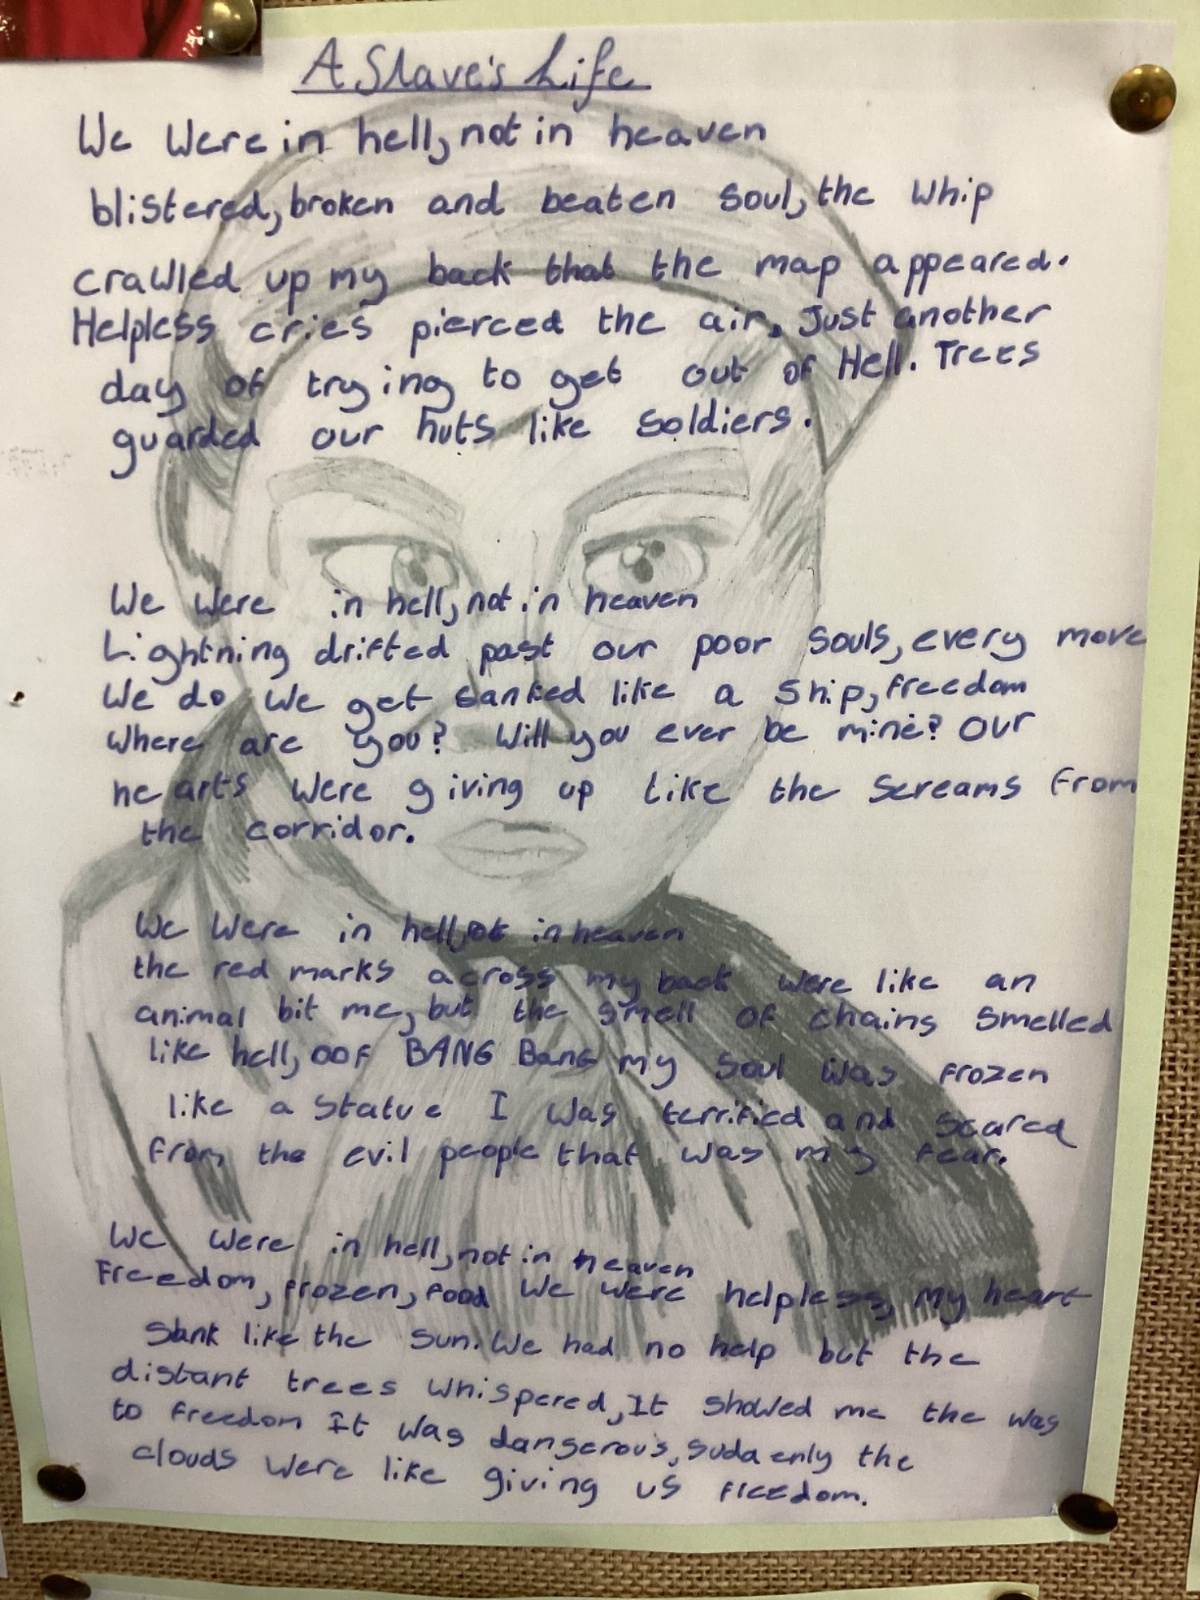 A Slave's Life
We Were in hell, not in heaven
blistered, broken and beaten soul, the whip
crawled up my back that the map appeared.
Helpless cries pierced the air, Just another
day of trying to get out of Hell. Trees
guarded our huts like Soldiers.
We were in hell, not in heaven
Lightning drifted past our poor souls, every move
We do We get sanked like a ship, freedom
Where are you? Will you ever be mine? Our
hearts were giving up like the screams from
the corridor.
We Were in hell, not in heaven
the red marks across my back were like an
animal bit me, but the smell of chains smelled
like hell, oof BANG Bang my soul was frozen
like a statue I was terrified and scared
from the evil people that was my fear.
We were in hell, not in heaven
Freedom, frozen, food We were helpless, my heart
sank like the sun. We had no help but the
distant trees whispered, It showed me the was
to freedom It was dangerous, suddenly the
clouds were like giving us freedom.